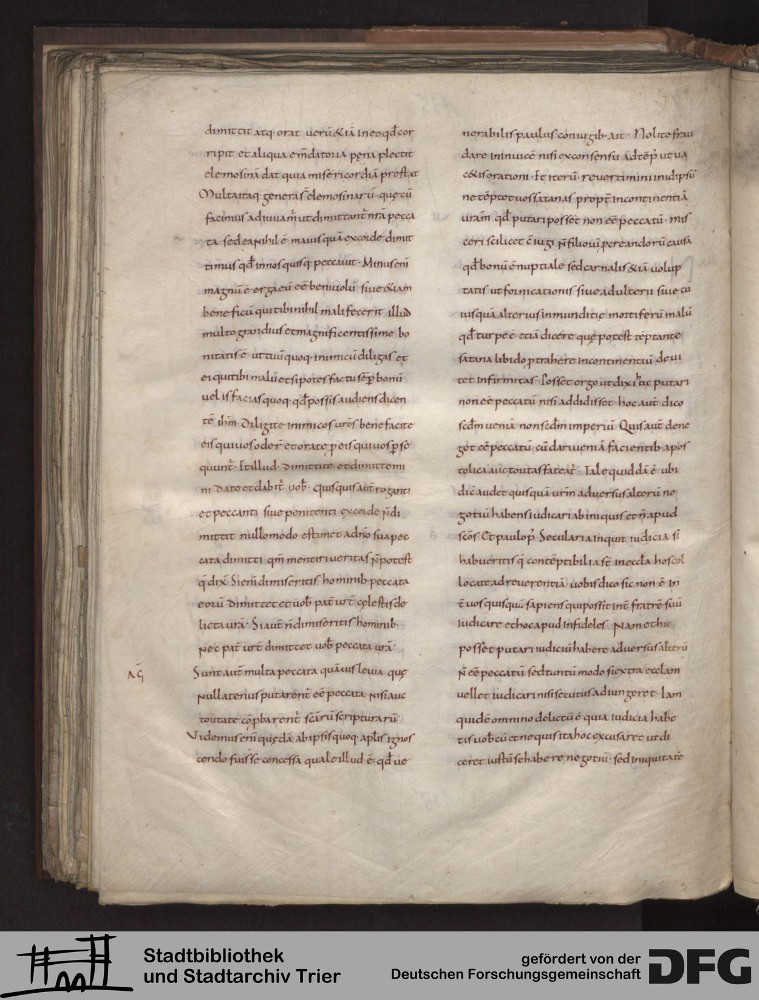 dimittit atq; orat uerũ &iã in eo qđ cor
ripit et aliqua emdatoria pena plectit
elemosinã dat quia misericordiã prestat
Multa itaq genera s̃ elemosinarũ · que cũ
facimus adiuuam̃ ut dimittant̃ nr̃a pecca
ta sed ea nihil ẽ maius qua ex corde dimit
timus qđ in nos quisq; peccauit · Minus eni
magnũ ẽ erga eũ eẽ beniuolũ siue &iam
beneficũ qui tibi nihil mali fecerit illud
multo grandius et magnificentissime bo
nitatis ẽ ut tuũ quoq inimicũ diligas et
ei qui tibi malũ et si potest facit sẽp bonũ
uelis facias quoq qđ possis audiens dicen
tẽ ihm̃ · Diligite inimicos urõs bene facite
eis qui uos oder̃ et orate p eis qui uos psẽ
quunt̃ · Et illud · dimittite et dimittemi
ni date et dabit̃ uob̃ · Quisquis aut̃ roganti
et peccanti siue penitenti ex corde ñ di
mittit nullomodo estimet a dño sua pec
cata dimitti · qm̃ mentiri ueritas ñ potest
q̃ dix̃ · Si eni dimiseritis hominib peccata
eorũ dimittet et uob̃ pat̃ urt̃ celestis de
licta urã · Si aut̃ ñ dimiseritis hominib·
Nec pat̃ urt̃ dimittet uob̃ peccata urã ·
AG̃
Sunt aut̃ multa peccata quãuis leuia que
nullatenus putarent̃ eẽ peccata nisi auc
toritate cõpbarent̃ scãrũ scripturarũ
Videmus eni quedã ab ipsis quoq; aplis ignos
cendo fuisse concessa quale illud ẽ · qđ ue
nerabilis paulus coniugib· ait · Nolite frau
dare in inuicẽ nisi ex consensu ad tẽp̃ ut ua
cetis orationi · Et iterũ reuertimini in idipsũ
ne tẽptet uos satanas propt̃ incontinentiã
urãm qđ putari posset non eẽ peccatũ · mis
ceri scilicet c̃iugi ñ filioru pereandorũ causa
qđ bonũ ẽ nuptiale sed carnalis &iã uolup
tatis ut fornicationis siue adulterii siue cu
iusquã alterius inmunditie mortiferũ malũ
qđ turpe ẽ etiã dicere que potest tẽptante
satana libido ptrahere incontinentiũ deui
tet infirmitas · Posset ergo ut dixi hic putari
non eẽ peccatũ nisi addidisset · hoc aut̃ dico
scdm̃ ueniã non scdm̃ imperiũ · Quis aut̃ dene
get eẽ peccatũ cũ dari ueniã facientib· apos
tolica auctoritas fateat̃ · Tale quiddã ẽ ubi
dic̃ audet quisquã ur̃m aduersus alterũ ne
gotiũ habens iudicari ab iniquis et ñ apud
scõs · Et paulo p̃ · Secularia inquit iudicia si
habueritis q̃ contẽptibilia st̃ in eccla hos col
locate ad reuerentiã uobis dico sic non ẽ in
t̃ uos quisquã sapiens qui possit int̃ fratrẽ suũ
iudicare et hoc apud infideles · Nam et hic
posset putari iudiciũ habere aduersus alterũ
ñ eẽ peccatũ sed tuntũ modo si extra ecclam
uellet iudicari nisi secutus adiungeret · Iam
quidẽ omnino delictũ ẽ quia iudicia habe
tis uobcũ et ne quis ita hoc excusaret ut di
ceret iustũ se habere negotiũ · sed iniquitatẽ
Stadtbibliothek
und Stadtarchiv Trier
gefördert von der
Deutschen Forschungsgemeinschaft
DFG